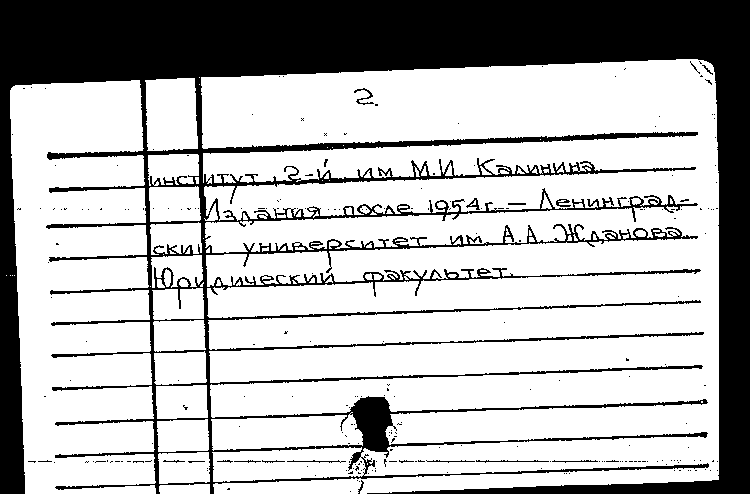 2
институт, 2-й им М.И. Калинина.
Издания после 1954г. — Ленинград-
ский университет им. А.А. Жданова.
Юридический факультет.